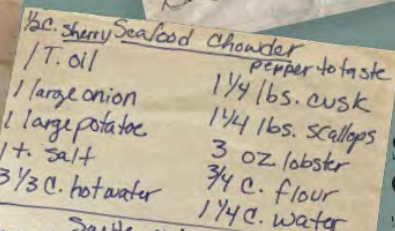 ½c. Sherry Seafood Chowder
pepper to taste
1 T. oil
1 large onion
1 large potatoe
1 t. Salt
3 1/3 C. hot water
1 1/4 lbs. cusk
1 1/4 lbs. Scallops
3 oz lobster
3/4 C. flour
1 1/4 C. water